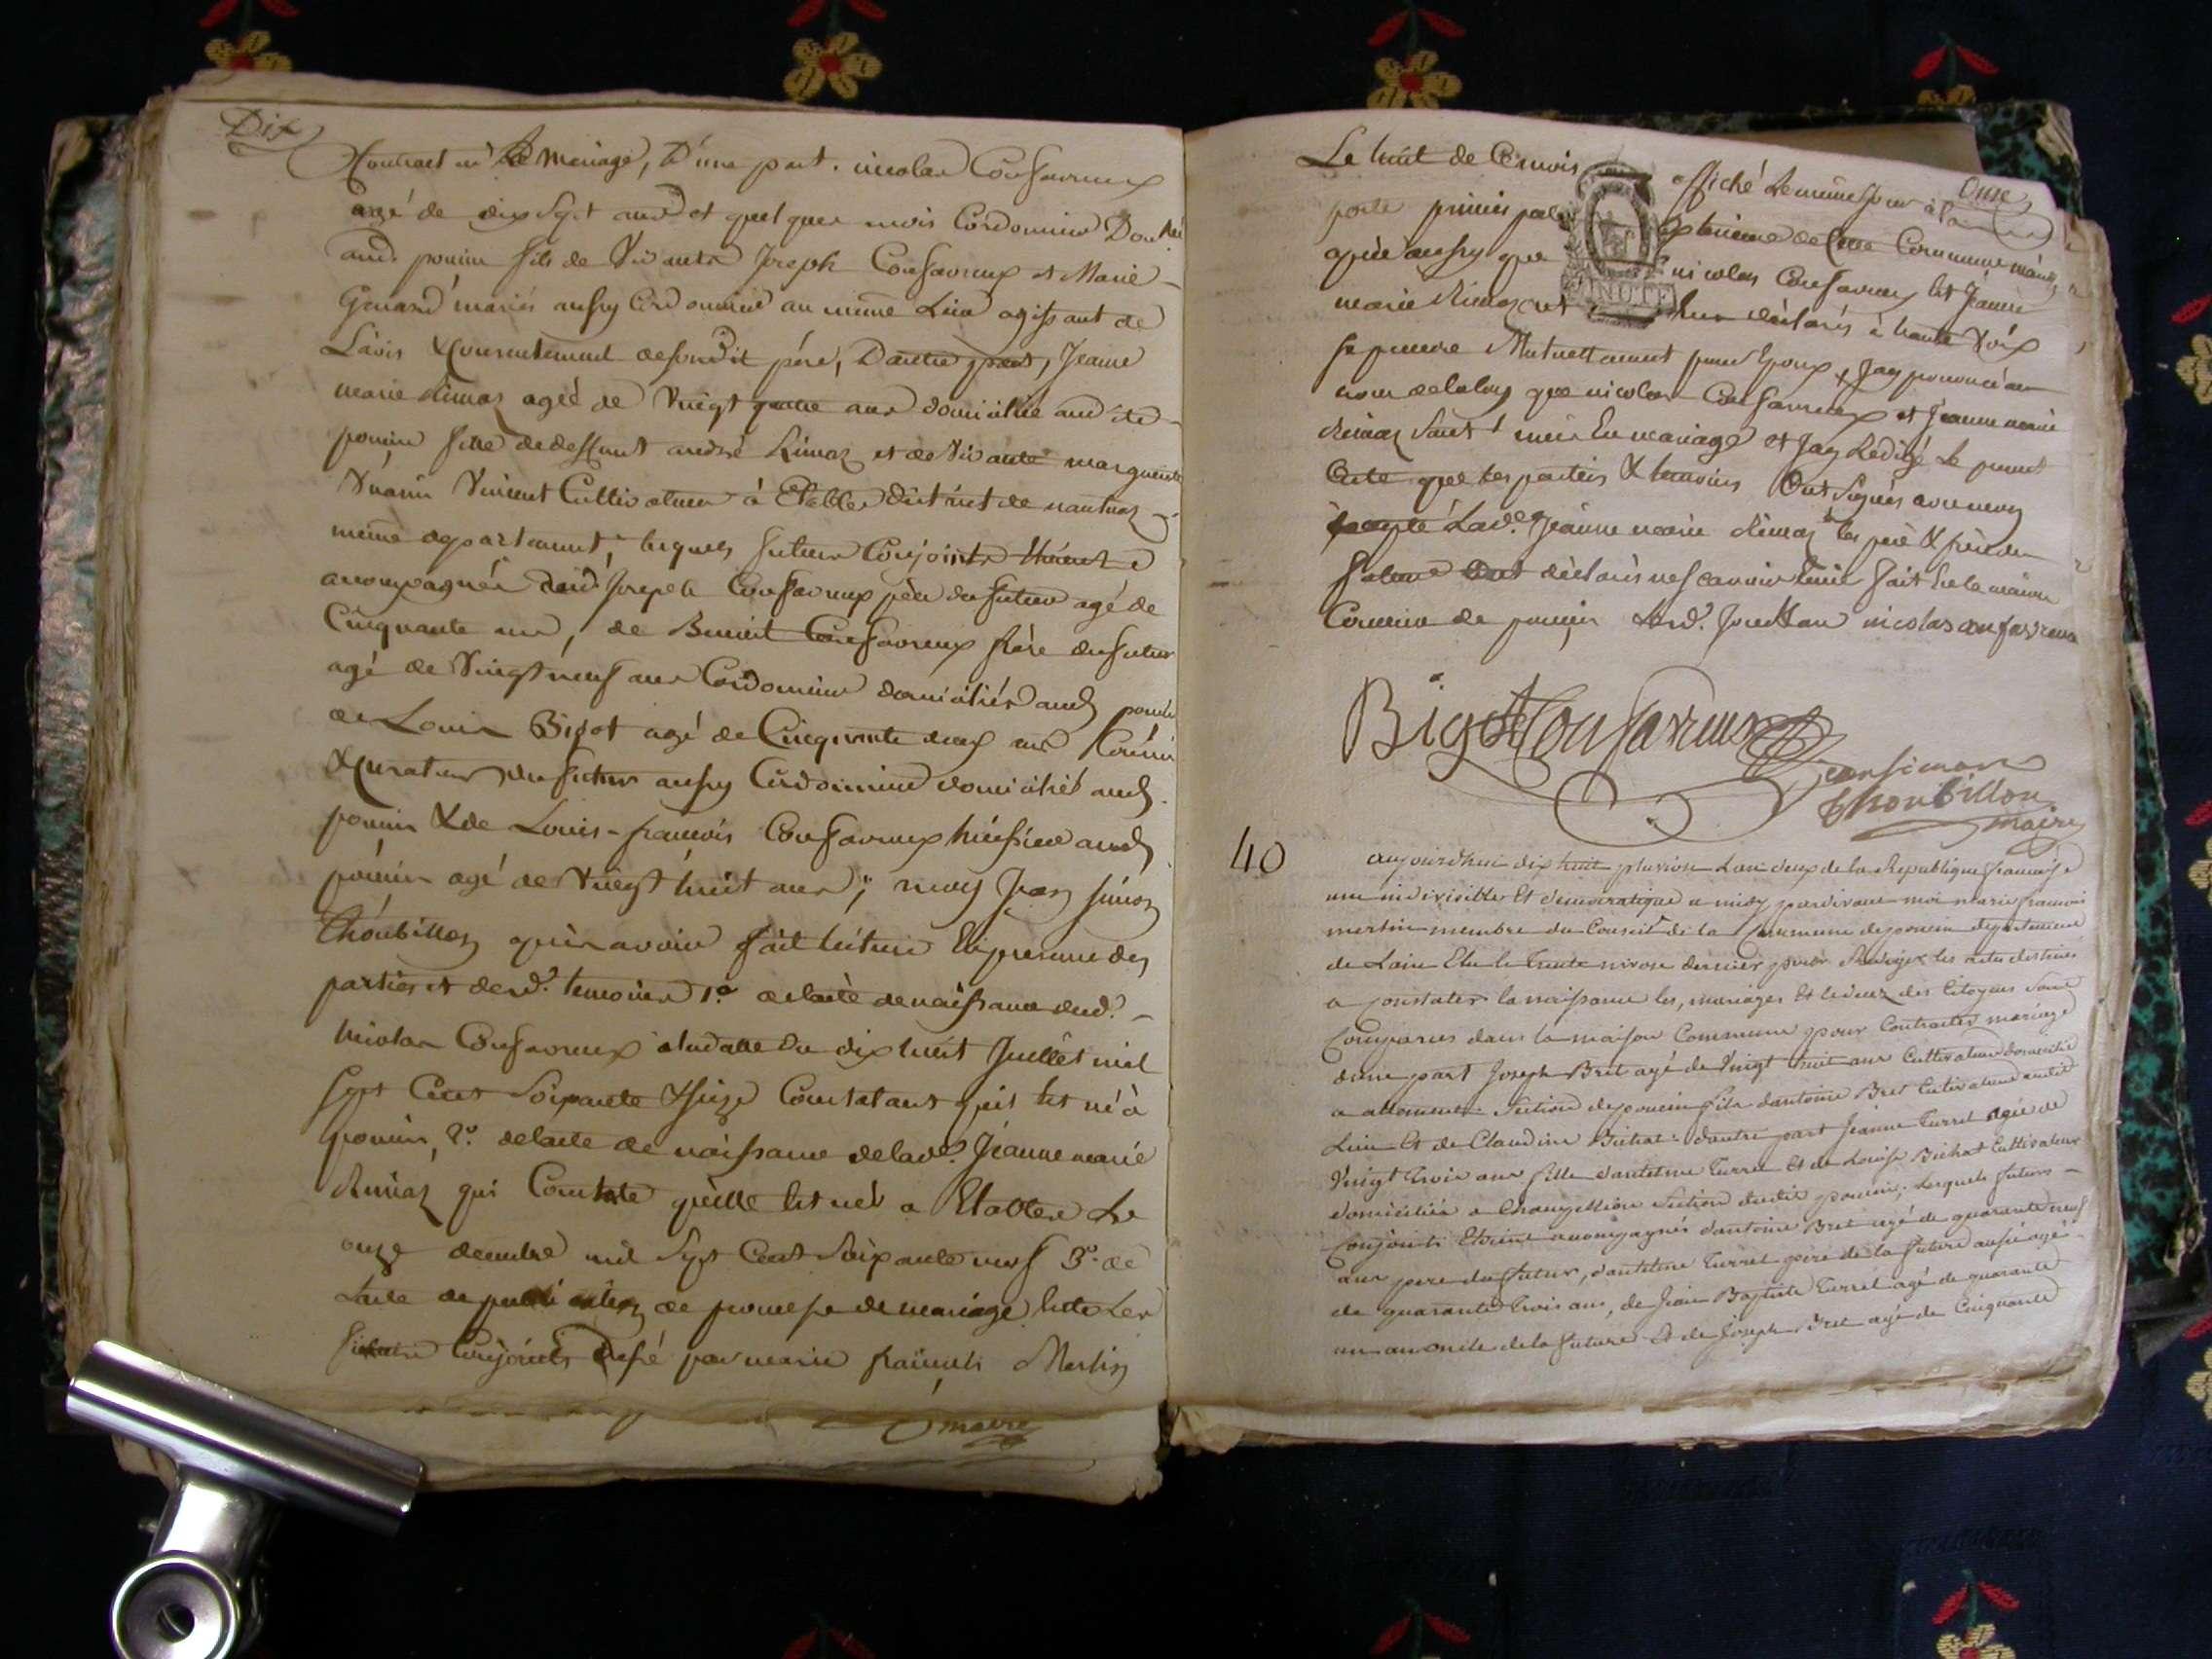 Dix
Contract en le mariage, D'une part. nicolas Confavreux
agé de dix Sept ans et quelques mois Cordonnier
aud. poncin fils de Vivants Joseph Confavreux et Marie
mariés aussy Cordonnier au même Lieu agissant de
L'avis & Consentement desondit père, D'autre part, Jeanne
marie agée de Vingt quatre ans domiciliée audite
poncin fille dedeffunt andré et de Vivante marguerite
Vincent Cultivateur à Etables District de nantua
même departement, lesquels futurs Conjoints étaient
accompagnés dud. Joseph Confavreux père du futur agé de
Cinquante un, de Benoit Confavreux frère du futur
agé de Vingt neuf ans Cordonnier domiciliés aud. poncin
de Louis Bigot agé de Cinquante deux ans
Curateur du futur aussy Cordonnier domicilié aud.
poncin & de Louis-francois Confavreux huissier aud.
poncin agé de Vingt huit ans; moy Jean Simon
Thoubillon après avoir fait lecture En presence des
parties et desd. temoins 1.o de l'acte de naissance dud.
Nicolas Confavreux aladatte du dix huit Juillet mil
Sept Cent Soixante & seize Constatant qu'il Est né à
poncin, 2.o de l'acte de naissance delad. Jeanne marie
qui Constate qu'elle Est née a Etables Le
onze decembre mil Sept Cent Soixante neuf 3.o de
L'acte de publication de promesse de mariage Entre Les
futurs Conjoints Dressé par marie francois Martin
maire
Onze
Le huit de Cemois affiché Lemême Jour à la
porte principale Exterieure de Cette Commune
après aussy que nicolas Confavreux Et Jeanne
marie ont Eu déclarés à haute Voix
se prendre Mutuellement pour Epoux, Jay prononcé au
nom delaloy que nicolas Confavreux et Jeanne marie
Sont unis En mariage et Jay Redigé Le present
acte que les parties & temoins Ont Signés avec moy
Excepté Lad.e Jeanne marie les père & frère du
futur Ont déclarés nescavoir Ecrire fait En la maison
Commune de poncin nicolas confavreux
MINUTE
Bigot Confavreux
Jean simon
Thoubillon
maire
40
aujourdhui dix huit pluviose Lan deux de la Republique francaise
une indivisible Et democratique a midy pardevant moi marie francois
martin membre du Conseil de la Commune deponcin departement
de Lain Elu le trente nivose dernier pour Rediger les actes destinés
a constater la naissance les, mariages Et deces des Citoyens Sont
Comparus dans la maison Commune pour Contracter mariage
dune part Joseph Bret agé de Vingt huit ans Cultivateur domicilié
a allement Section deponcin fils dantoine Bret Cultivateur audit
Lieu Et de Claudine Bichat: dautre part Jeanne Turrel agée de
Vingt trois ans fille dantelme Turrel Et de Louise Bichat Cultivateur
domiciliés a Champellion Section dudit poncin; lesquels futurs
Conjoints Etoient accompagnés dantoine Bret agé de quarante neuf
ans pere du futur, dantelme Turrel pere de la future aussi agé
de quarante trois ans, de Jean Baptiste Turrel agé de quarante
un an oncle dela future Et de Joseph Bret agé de Cinquante